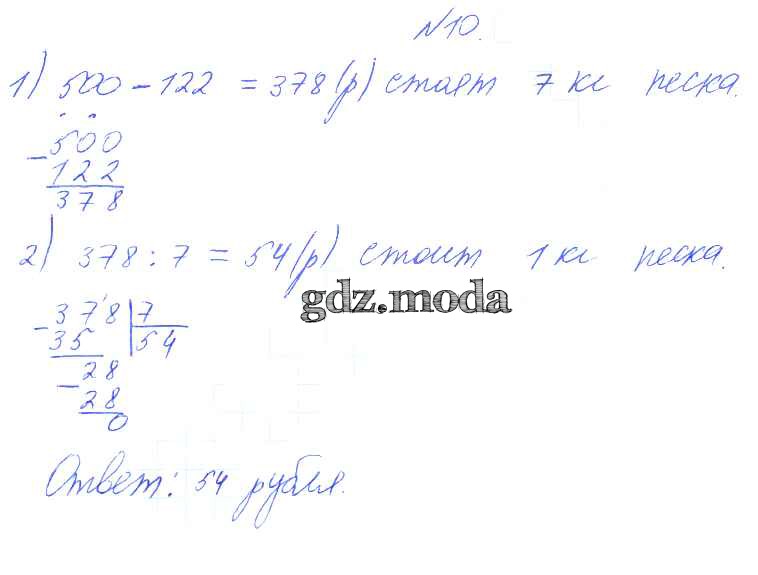 №10.
1) 500 - 122 = 378 (р) стоят 7 кг песка.
- 500
122
378
2) 378 : 7 = 54 (р) стоит 1 кг песка.
gdz.moda
- 378 | 7
35 | 54
- 28
28
0
Ответ: 54 рубля.